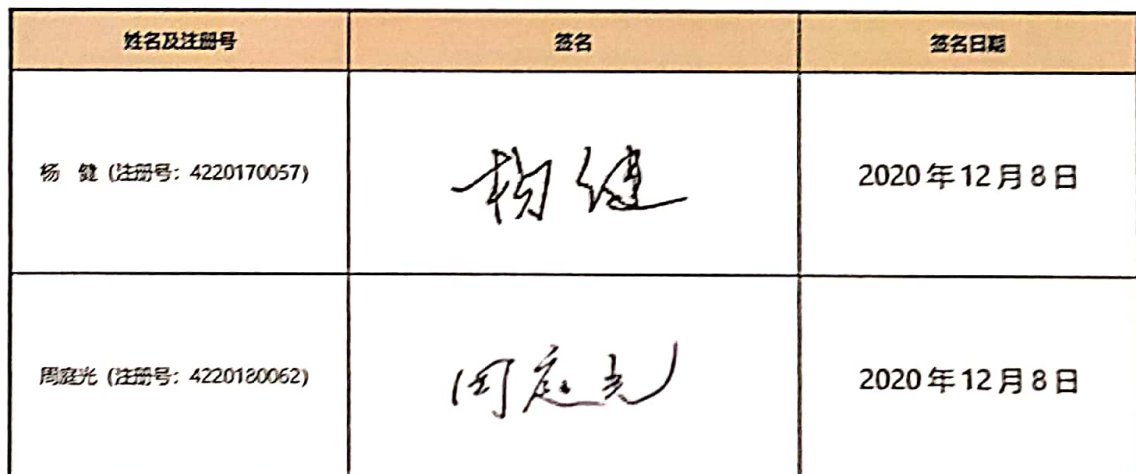 姓名及注册号 签名 签名日期
杨 健（注册号：4220170057） 杨健 2020年12月8日
周庭光（注册号：4220180062） 周庭光 2020年12月8日